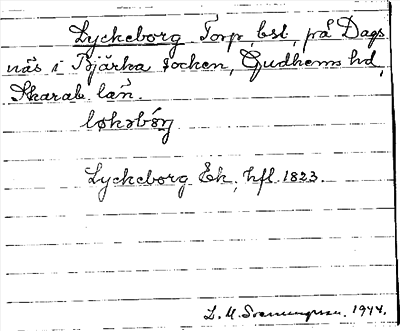 Lyckeborg Torp bst. på Dags
näs i Bjärka socken, Gudhems hd,
Skarab. län.
løkəbórj
Lyckeborg Ek. hfl. 1823.
L. M. Svanungsson. 1944.